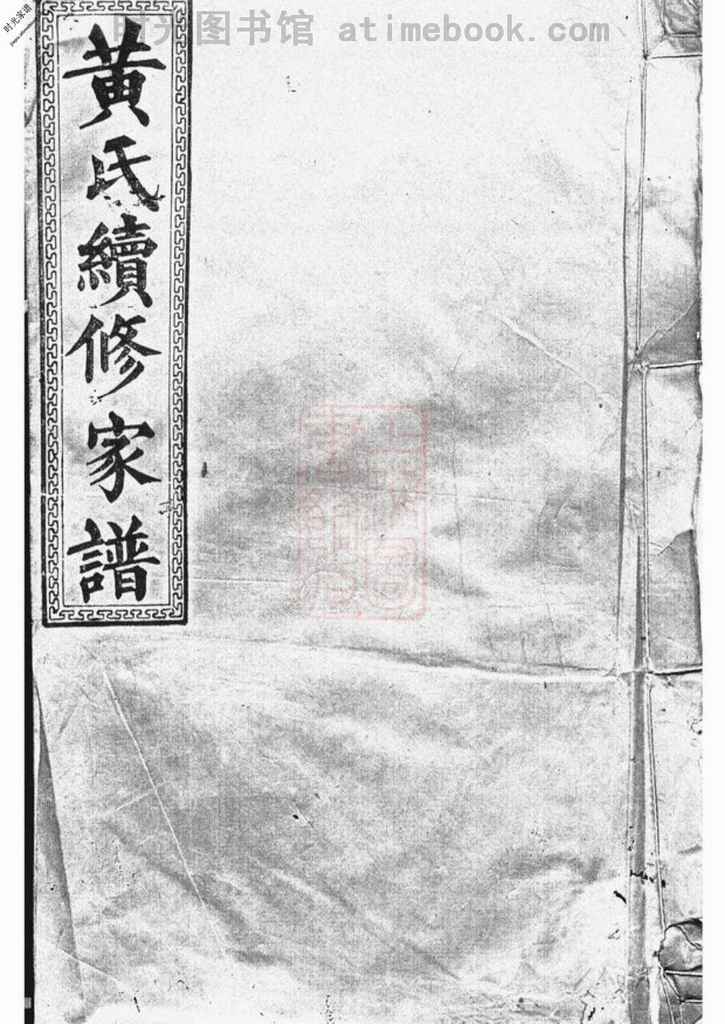 时光图书馆 atimebook.com
时光家谱
黃氏續修家譜